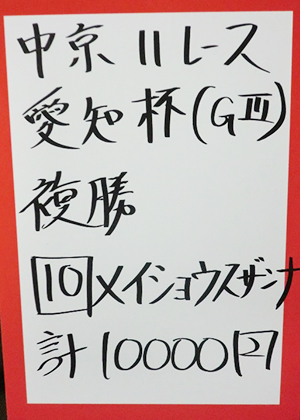 中京11レース
愛知杯(GⅢ)
複勝
10メイショウスザンナ
計10000円